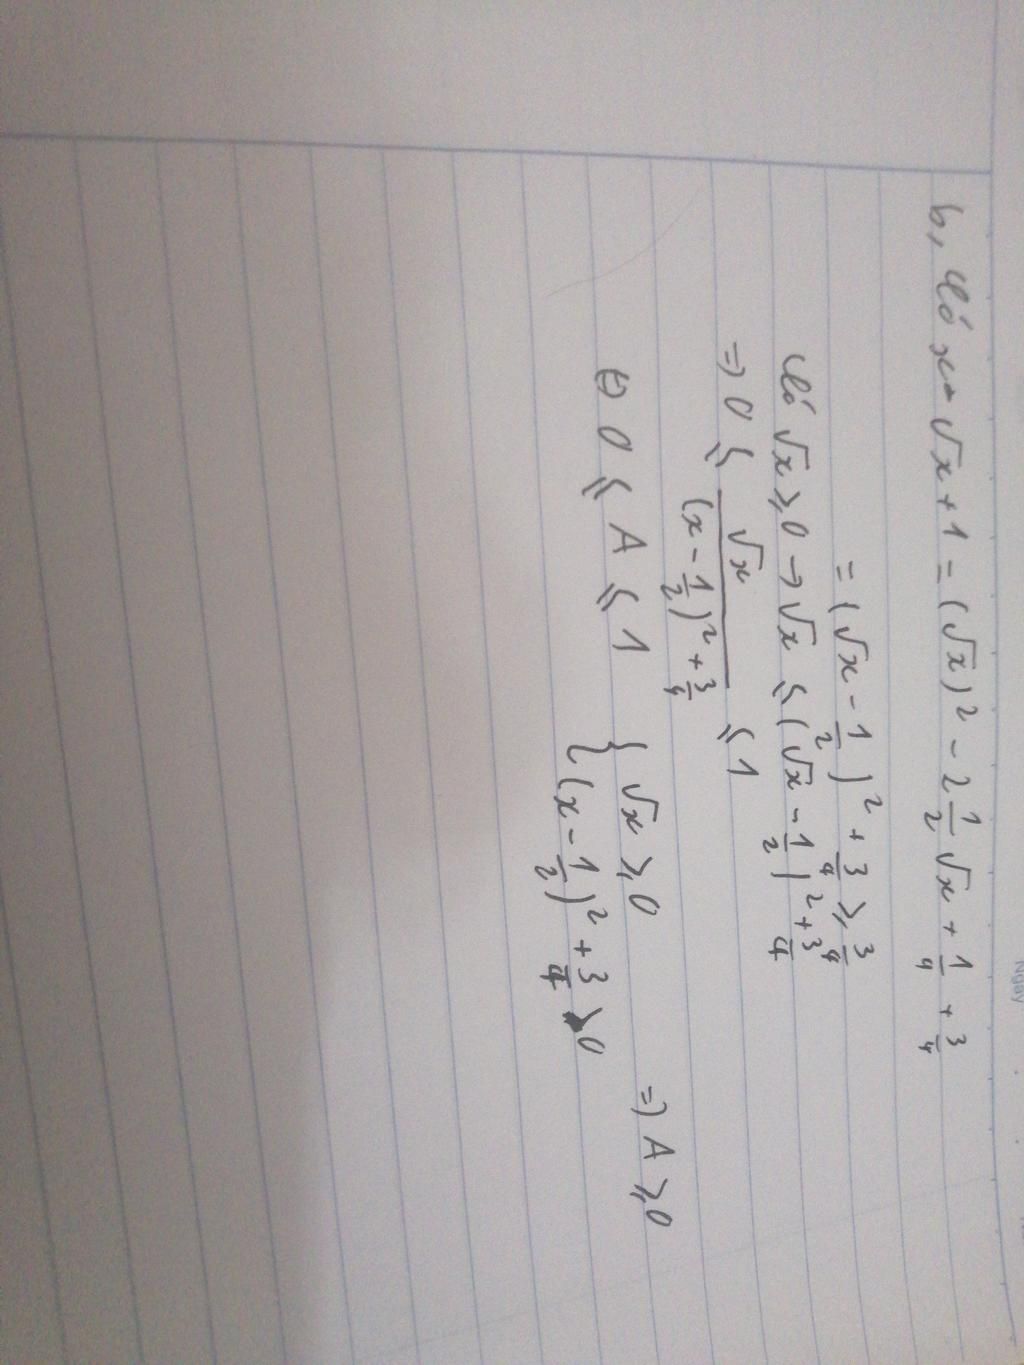 b, Có x - √x + 1 = (√x)² - 2 1/2 √x + 1/4 + 3/4
= (√x - 1/2)² + 3/4 ⩾ 3/4
Có √x ⩾ 0 → √x ⩽ (√x - 1/2)² + 3/4
=> 0 ⩽ √x / ((x - 1/2)² + 3/4) ⩽ 1
⇔ 0 ⩽ A ⩽ 1
{ √x ⩾ 0
(x - 1/2)² + 3/4 > 0
=> A ⩾ 0
Ngày